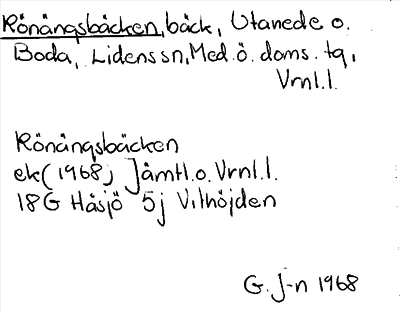 Rönängsbäcken, bäck, Utanede o.
Boda, Lidens sn, Med. ö. doms. tg,
Vrnl.l.
Rönängsbäcken
ek (1968) Jämtl. o. Vrnl.l.
18G Håsjö 5j Vilhöjden
G. J-n 1968